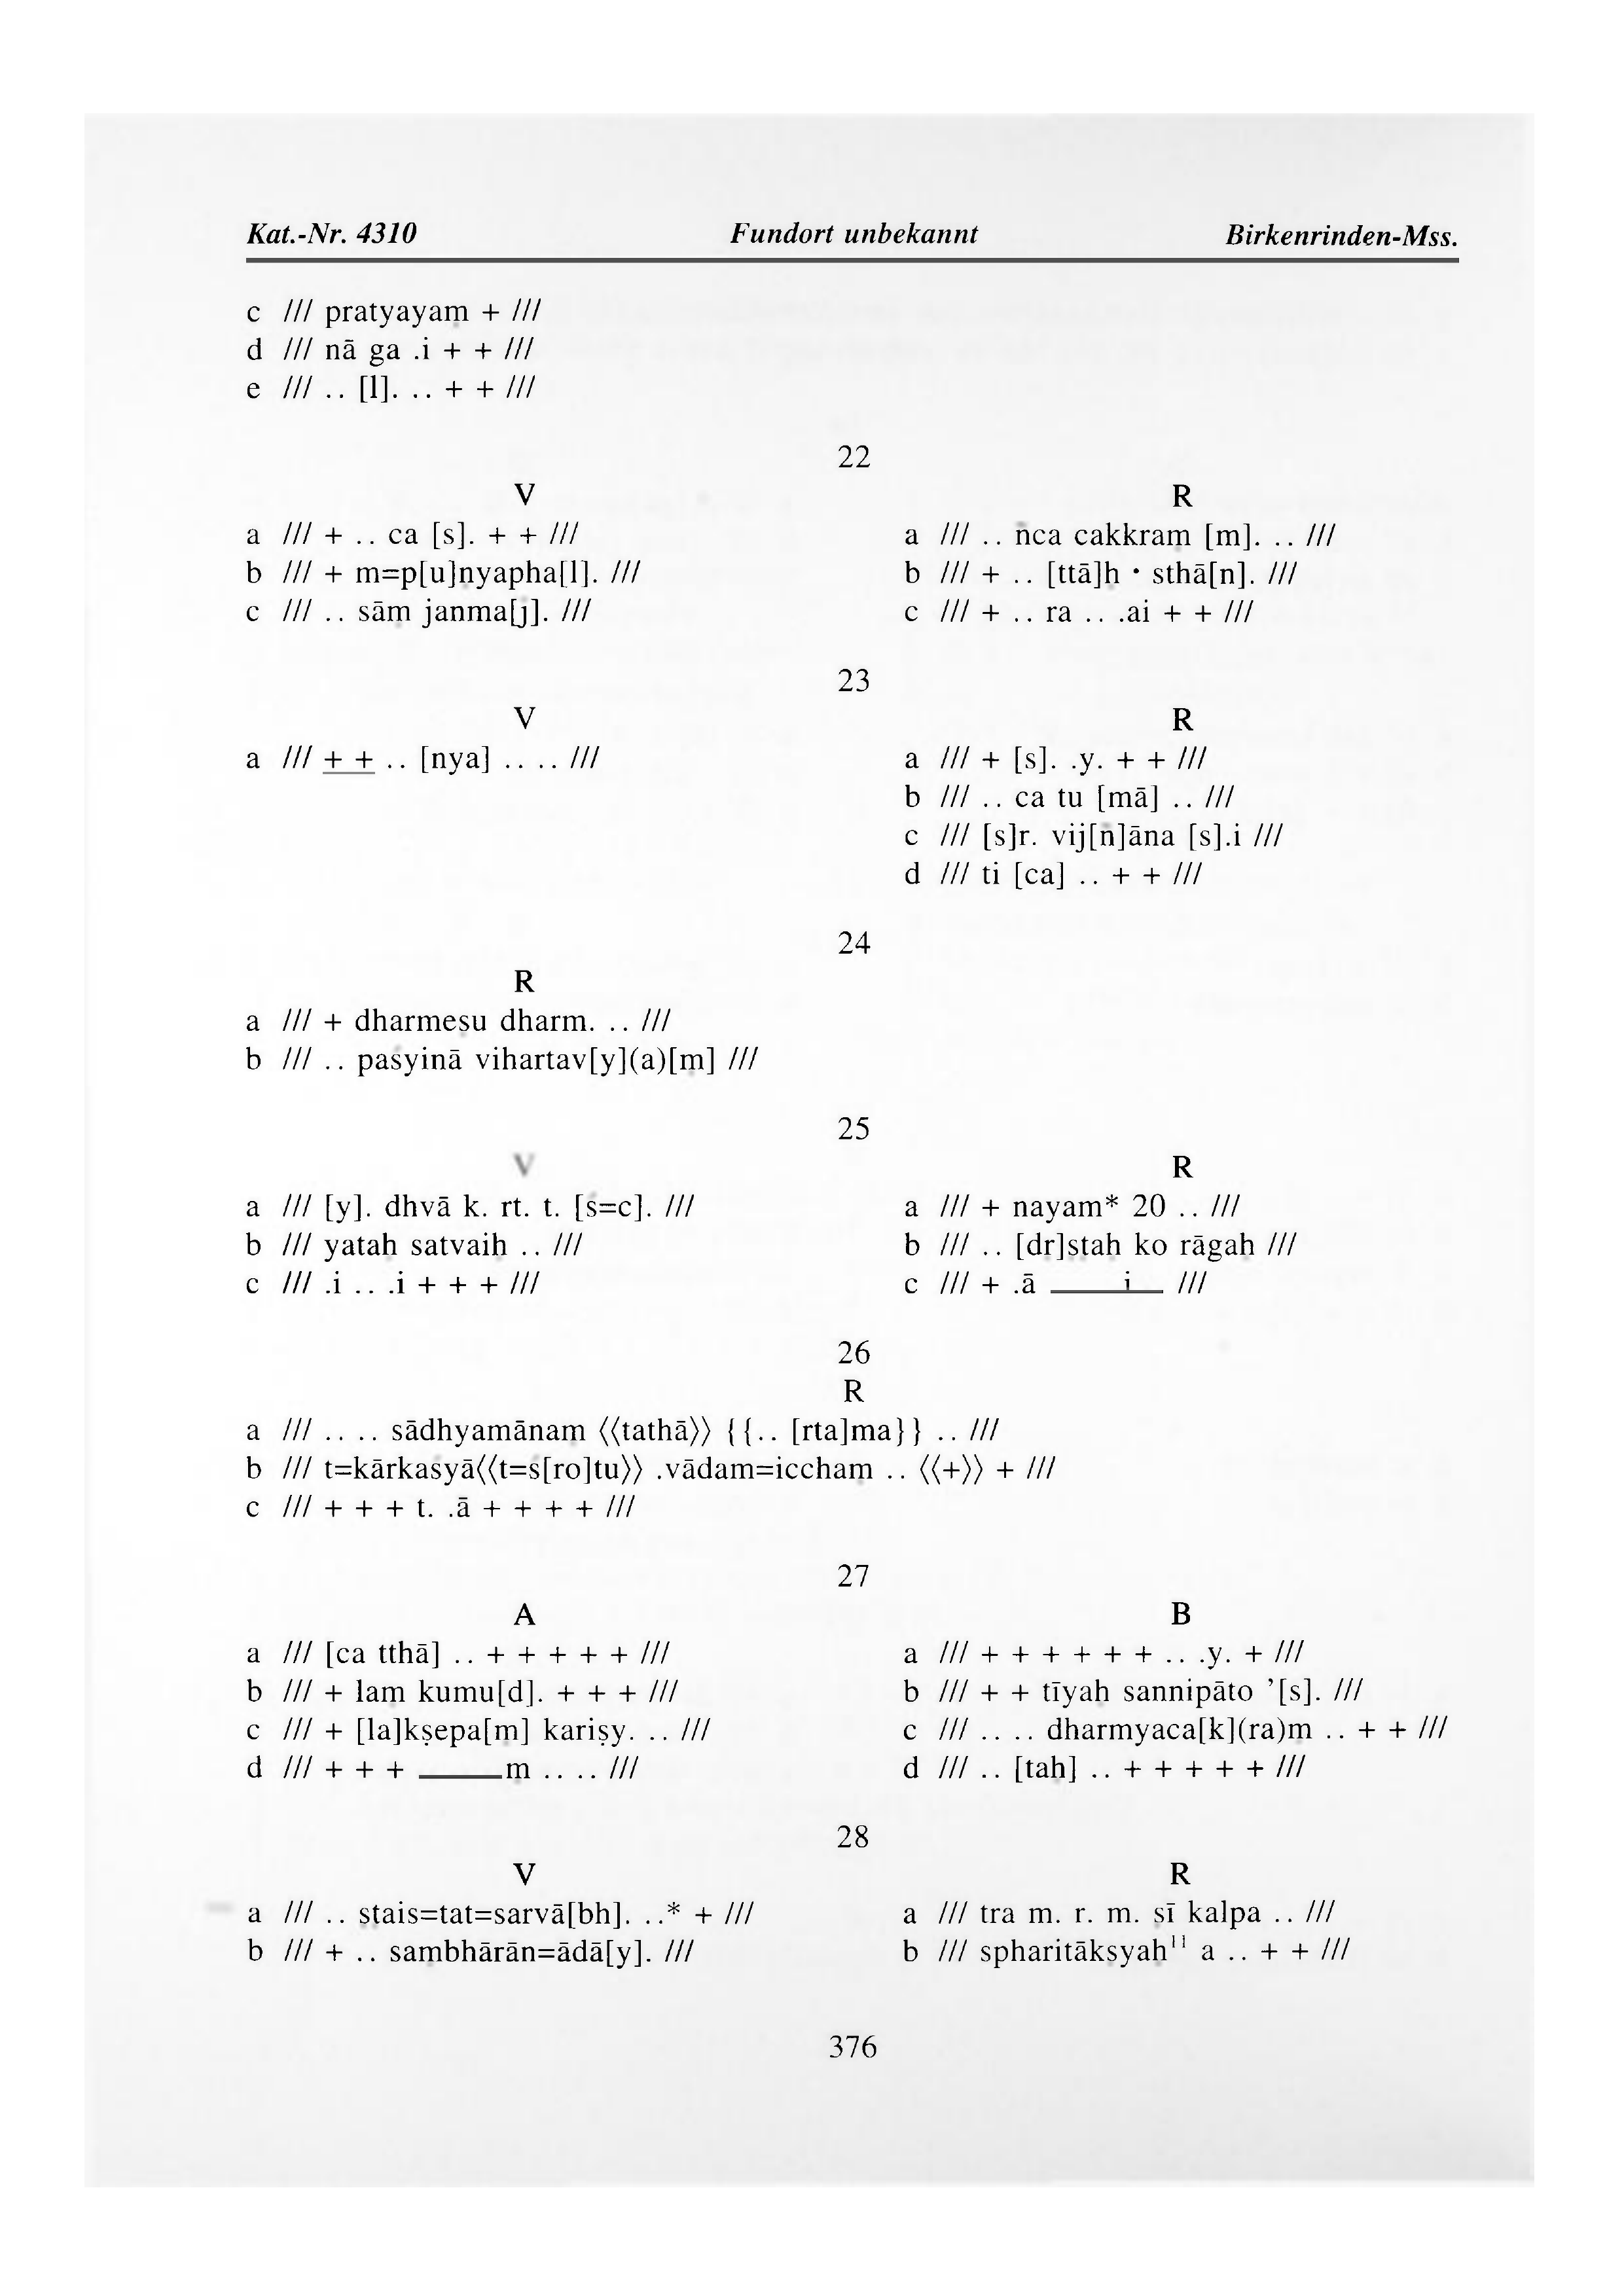 Kat.-Nr. 4310 Fundort unbekannt Birkenrinden-Mss.
c /// pratyayaṃ + ///
d /// nā ga .i + + ///
e /// .. [l]. .. + + ///
22
V
a /// + .. ca [s]. + + ///
b /// + m=p[u]nyapha[l]. ///
c /// .. sāṃ janma[j]. ///
R
a /// .. ñca cakkraṃ [m]. .. ///
b /// + .. [ttā]ḥ • sthā[n]. ///
c /// + .. ra .. .ai + + ///
23
V
a /// + + .. [nya] .. .. ///
R
a /// + [s]. .y. + + ///
b /// .. ca tu [mā] .. ///
c /// [s]r. vij[ñ]āna [s].i ///
d /// ti [ca] .. + + ///
24
R
a /// + dharmeṣu dharm. .. ///
b /// .. paśyinā vihartav[y](a)[ṃ] ///
25
V
a /// [y]. dhvā k. rt. t. [ś=c]. ///
b /// yataḥ satvaiḥ .. ///
c /// .i .. .i + + + ///
R
a /// + nayam* 20 .. ///
b /// .. [dṛ]ṣṭaḥ ko rāgaḥ ///
c /// + .ā _____i__ ///
26
R
a /// .. .. sādhyamānaṃ ⟨⟨tathā⟩⟩ {{.. [rta]ma}} .. ///
b /// t=kārkaśyā⟨⟨t=ś[ro]tu⟩⟩ .vādam=icchaṃ .. ⟨⟨+⟩⟩ + ///
c /// + + + t. .ā + + + + ///
27
A
a /// [ca tthā] .. + + + + + ///
b /// + laṃ kumu[d]. + + + ///
c /// + [la]kṣepa[ṃ] kariṣy. .. ///
d /// + + + _____m .. .. ///
B
a /// + + + + + + .. .y. + ///
b /// + + tīyaḥ sannipāto ’[s]. ///
c /// .. .. dharmyaca[k](ra)ṃ .. + + ///
d /// .. [taḥ] .. + + + + + ///
28
V
a /// .. ṣṭais=tat=sarvā[bh]. ..* + ///
b /// + .. saṃbhārān=ādā[y]. ///
R
a /// tra m. r. m. ṣī kalpa .. ///
b /// spharitākṣyaḥ¹¹ a .. + + ///
376